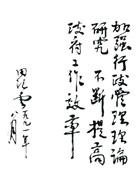 加强行政管理理论
研究不断提高
政府工作效率
田纪云一九九一年
八月